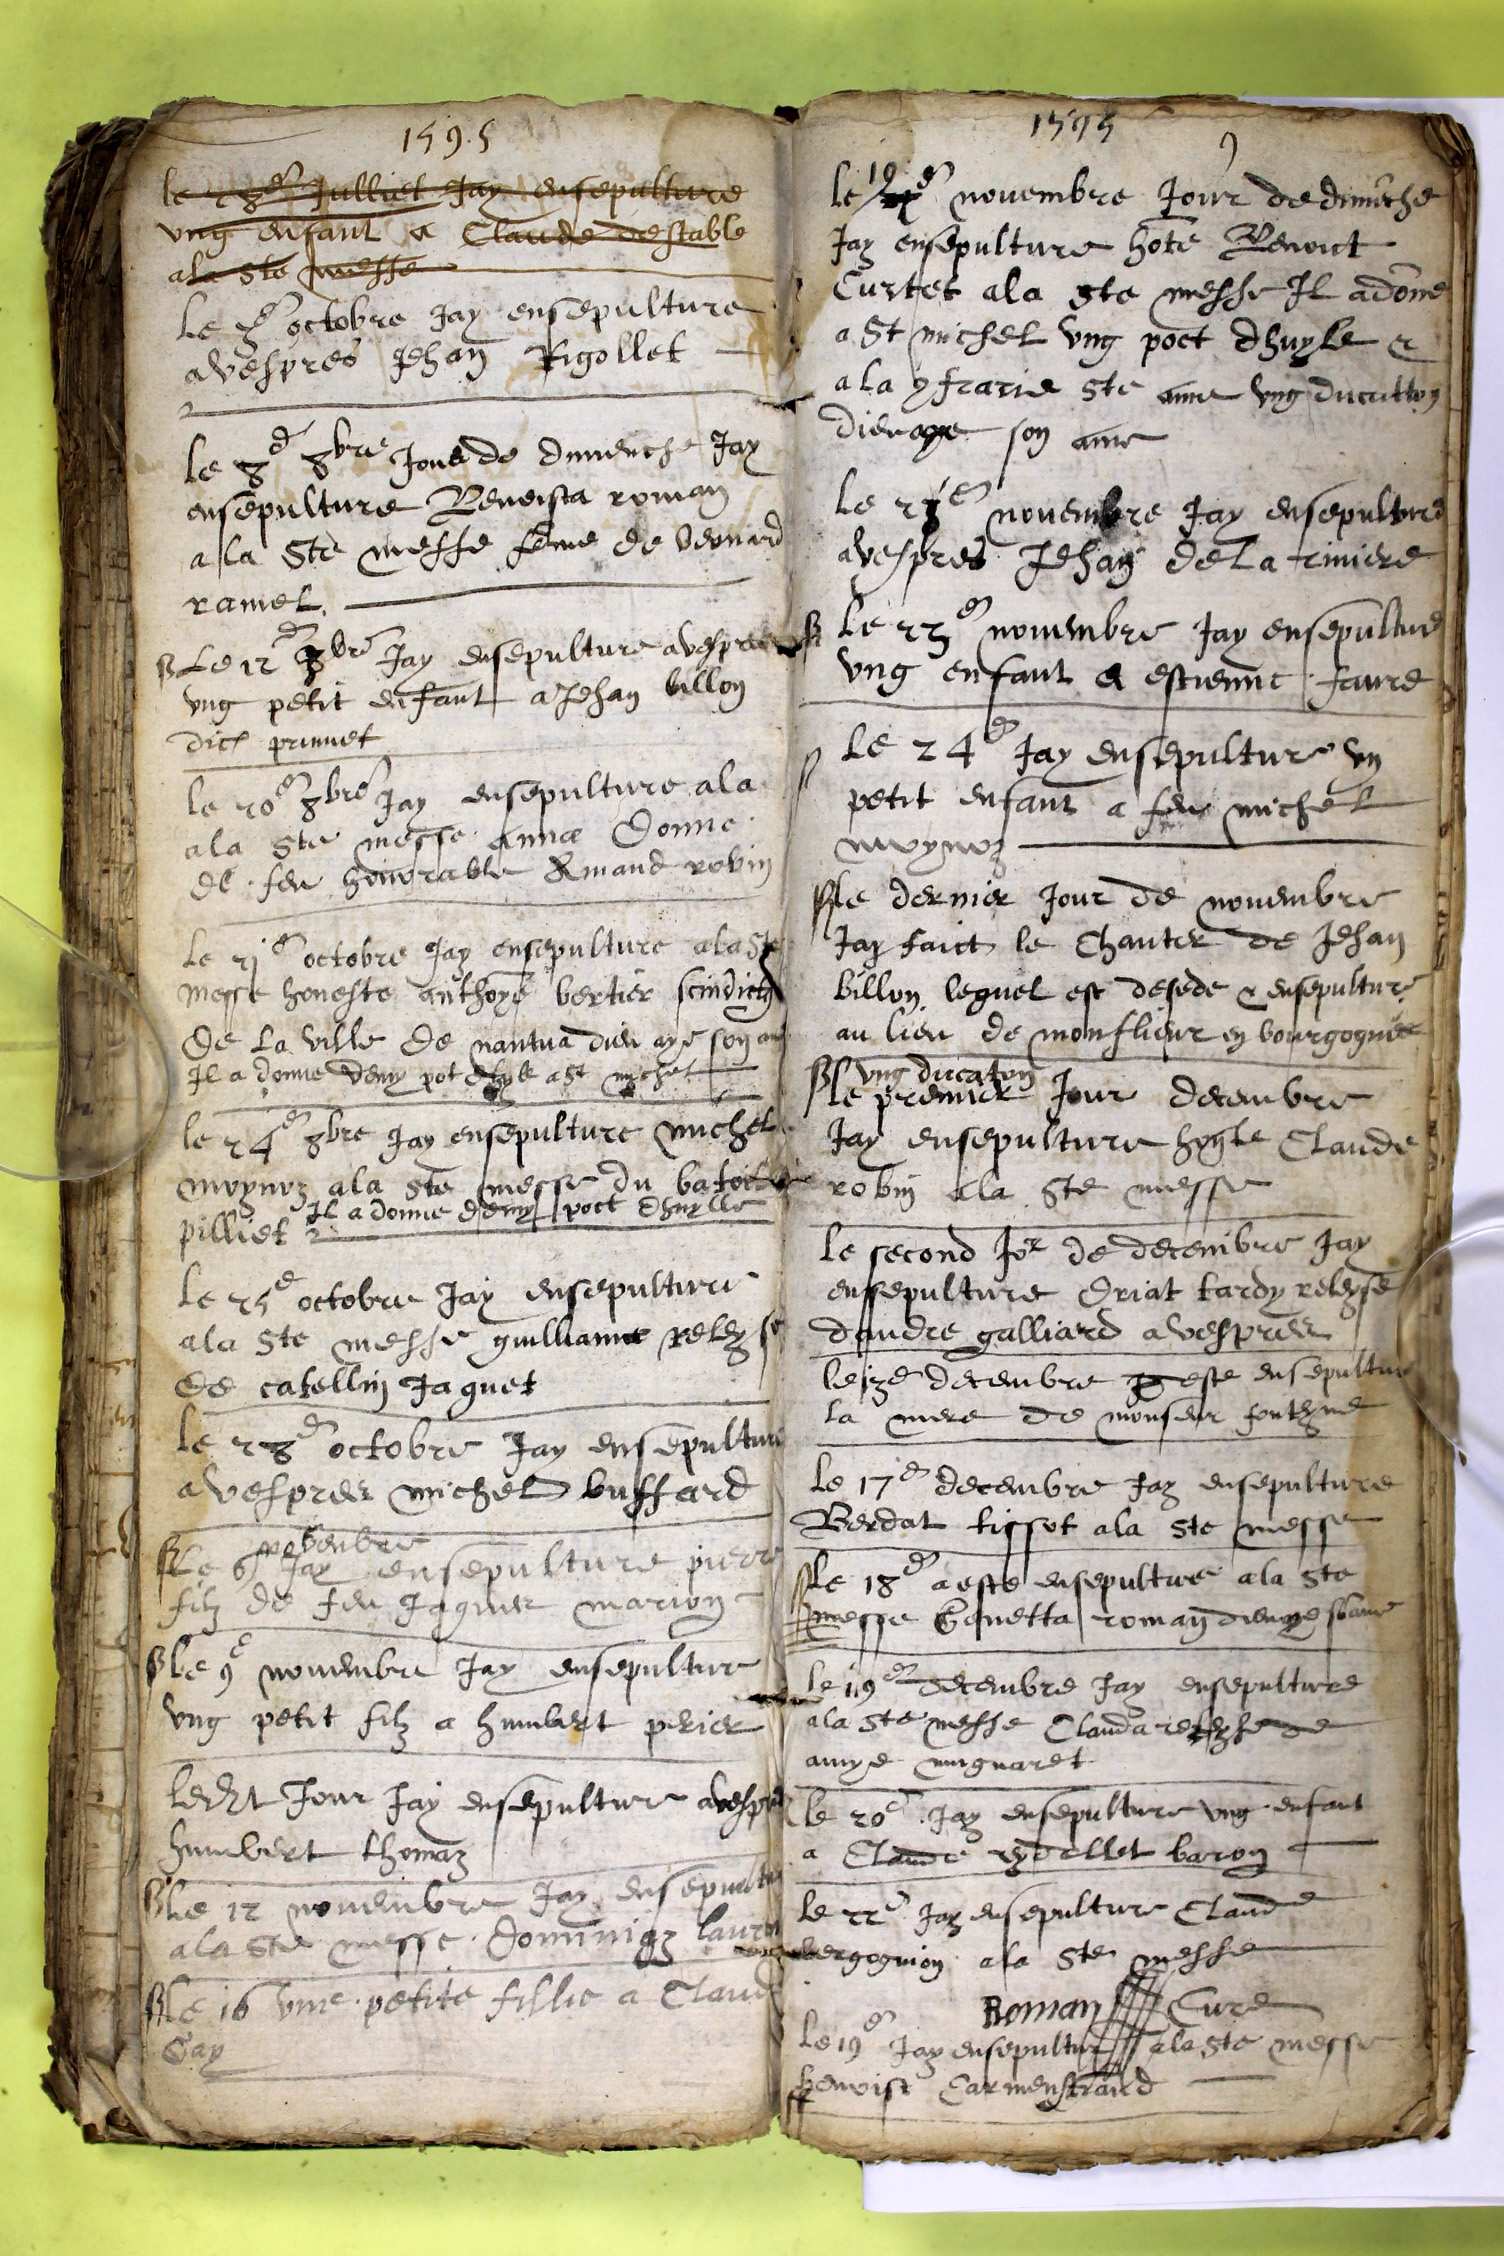 1595
le 28e Julliet Jay ensepulture
vng enfant a Claude destable
ala ste messe
Le octobre Jay ensepulture
avespres Jehan Rigollet
Le 8e 8bre Jour de dimenche Jay
ensepulture Benoista roman
a la Ste messe feme de leonard
ramel
Le 12 8bre Jay ensepulture avespres
vng petit enfant a Jehan billon
dict prinuet
le 20e 8bre Jay ensepulture ala
ala ste messe anna Donne
de feu honorable Amand robin
Le 21e octobre Jay ensepulture ala Ste
messe honeste anthoyne bertier scindicq
De La ville De nantua dieu aye son ame
Il a donne demy pot dhuyle a St michel
le 24e 8bre Jay ensepulture michel
moynoz ala ste messe du
Il a donne demy poct dhuylle
pilliet
Le 25e octobre Jay ensepulture
ala Ste messe guilliauma releyse
De catellin Jaquet
Le 28e octobre Jay ensepulture
avespres michel buffard
novembre
Le 6 Jay ensepulture pierre
filz de feu Jaques marion
Le 9e novembre Jay ensepulture
vng petit filz a humbert perier
Ledict Jour Jay ensepulture avespres
humbert thomaz
Le 12 novembre Jay ensepulture
ala Ste messe Dominiqz
Le 16 vne petite fillie a Claude
Gay
1595
9
le 19e novembre Jour de dimenche
Jay ensepulture hoste Benoict
Curtet ala ste messe Il a done
a St michel vng poct dhuyle et
a la 9frarie Ste anne vng ducatton
dieu aye son ame
Le 21e novembre Jay ensepulture
avespres Jehan De La riviere
Le 23e novembre Jay ensepulture
vng enfant a estienne faure
Le 24e Jay ensepulture vn
petit enfant a feu michel
moynoz
le dernier Jour de novembre
Jay faict le Chanter de Jehan
Billon lequel est desede & ensepulture
au lieu de monflieur en bourgognie
vng ducaton
le premier Jour decembre
Jay ensepulture hoste Claude
robin ala Ste messe
Le second Jor de decembre Jay
ensepulture tardy releyse
dandre galliard avespres
le 13e decembre a este ensepulture
la mere de monseur
Le 17e decembre Jay ensepulture
Berdat tissot ala Ste messe
Le 18e a este ensepulture ala Ste
messe Benetta roman dieu aye
Le 19e decembre Jay ensepulture
ala Ste messe Clauda releyse de
amye
Le 20e Jay ensepulture vng enfant
a Claude reydellet baron
Le 22e Jay ensepulture Claude
bergognion ala Ste messe
Roman Cure
Le 19e Jay ensepulture ala Ste messe
benoist Carmentrand